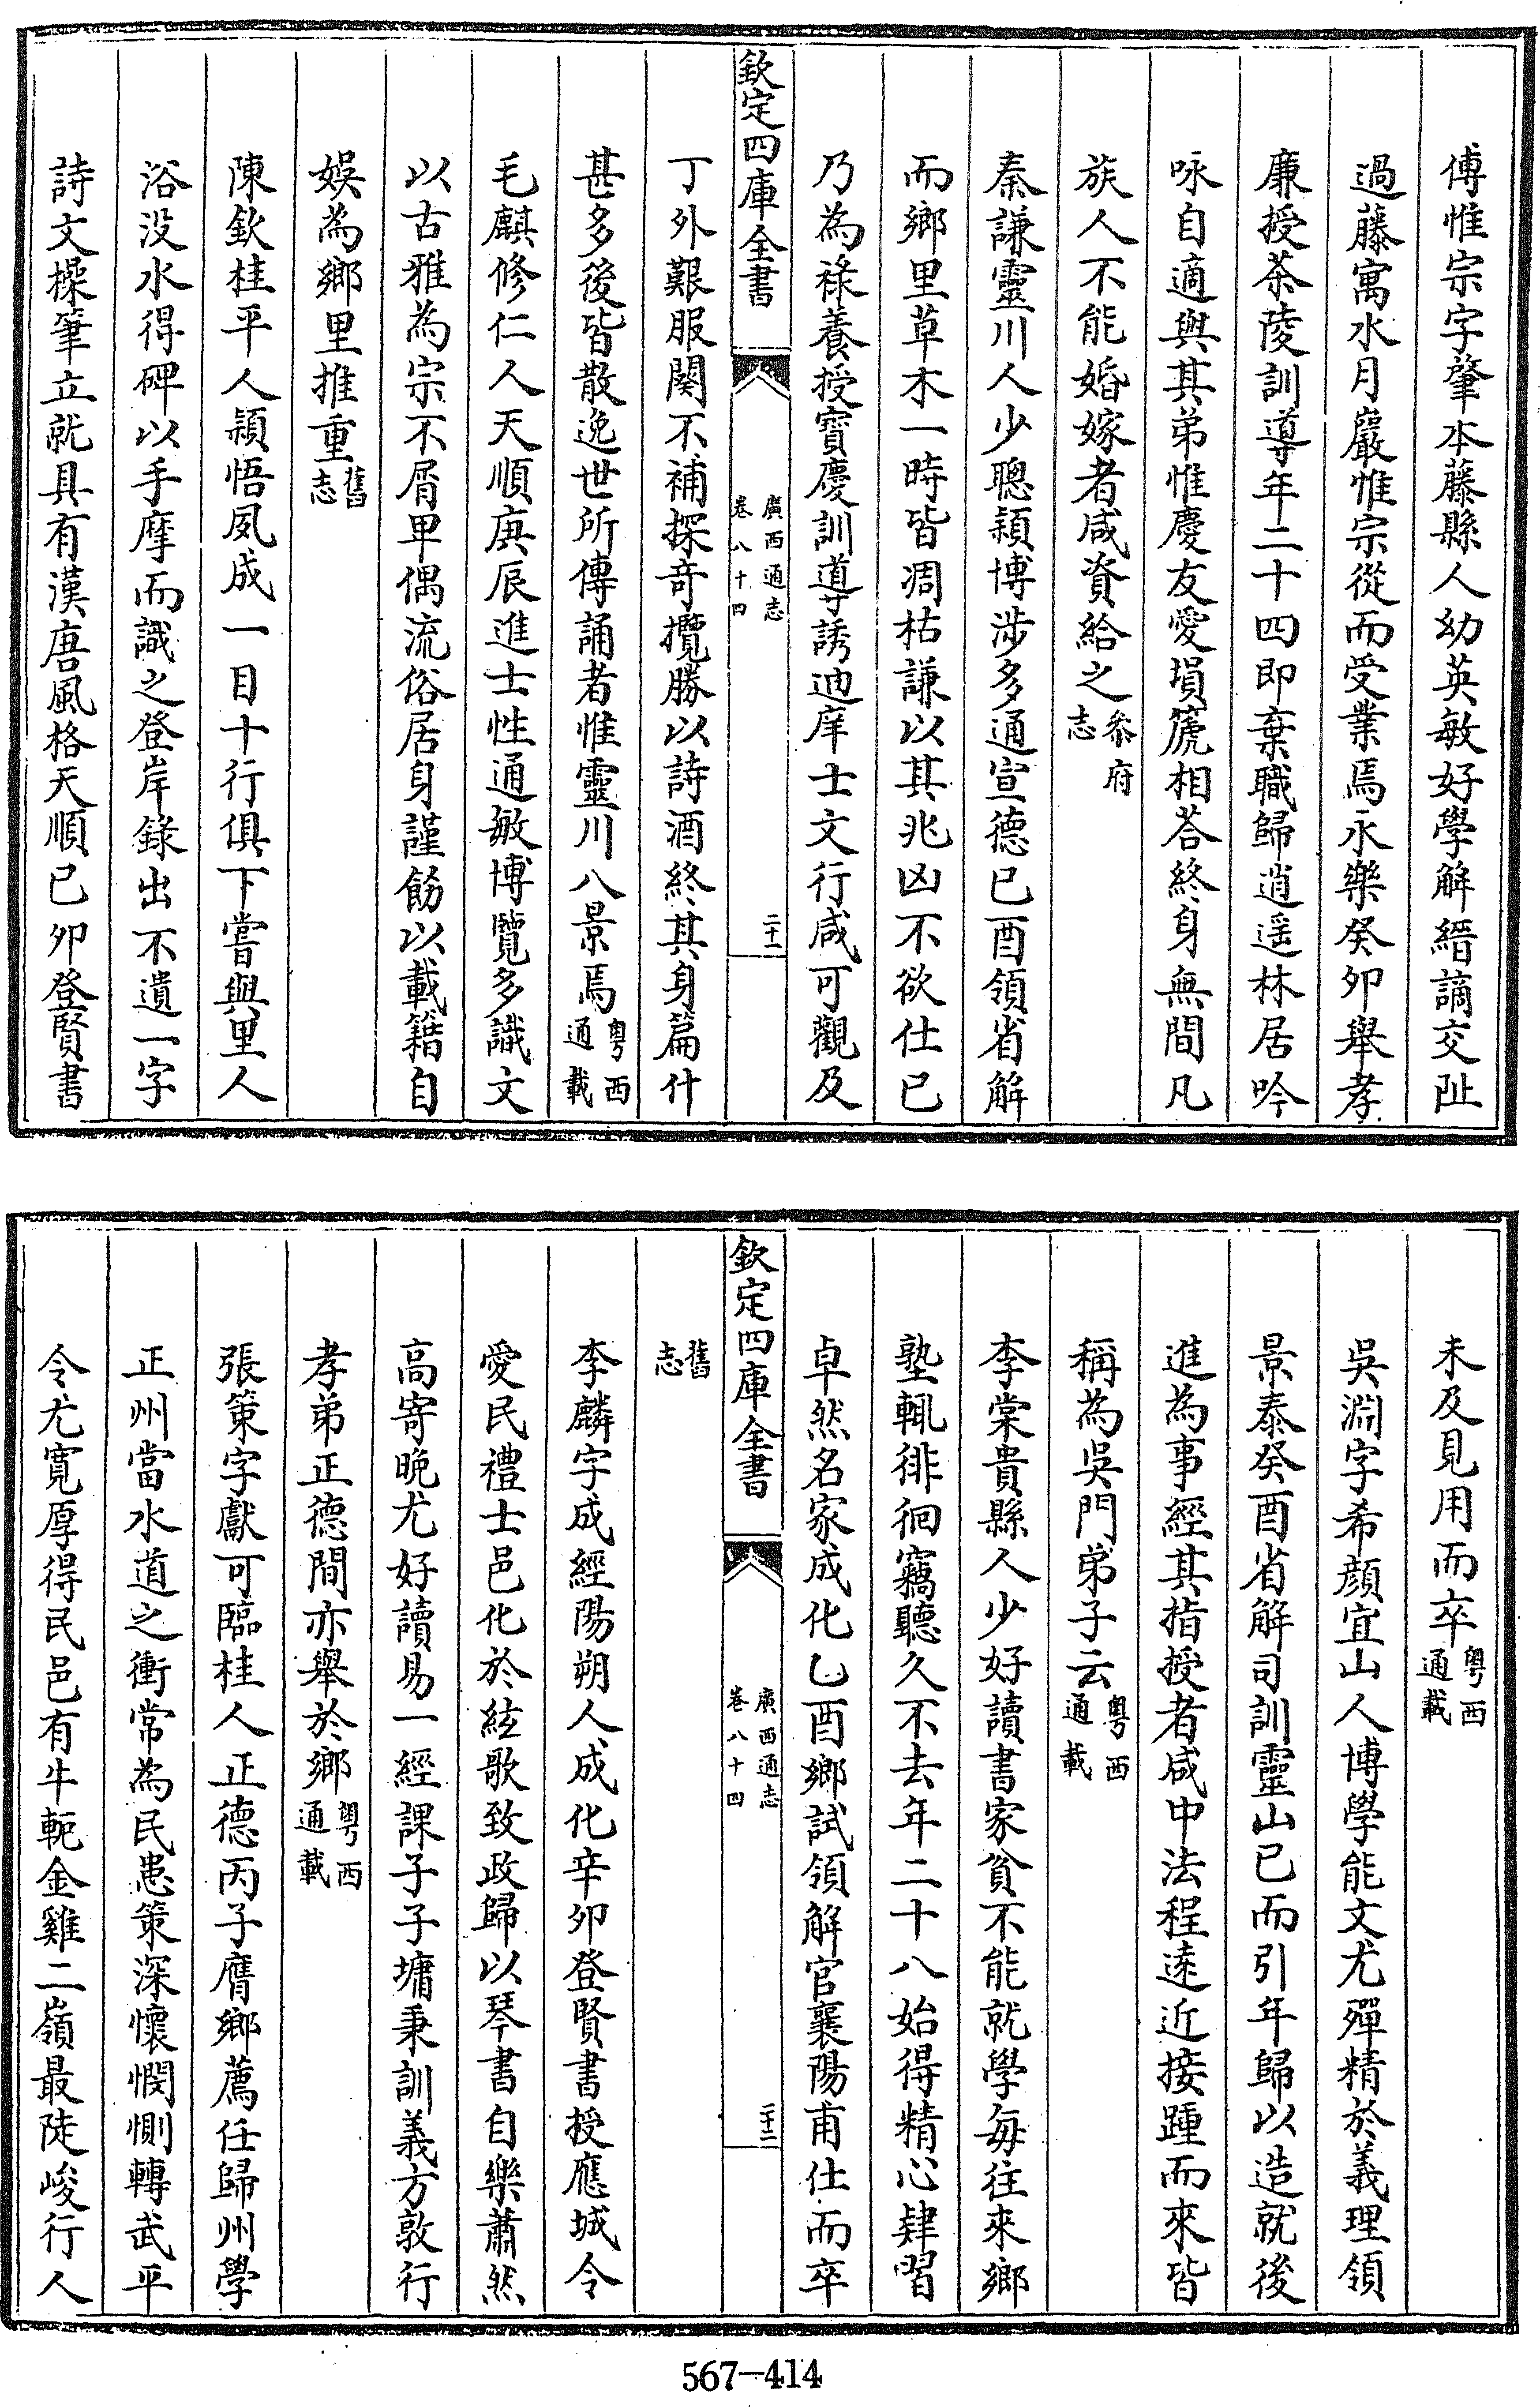 傅惟宗字肇本藤縣人幼英敏好學解縉謫交阯
過藤寓水月巖惟宗從而受業焉永樂癸卯舉孝
廉授茶陵訓導年二十四即棄職歸逍遥林居吟
咏自適與其弟惟慶友愛塤篪相荅終身無間凡
族人不能婚嫁者咸資給之叅府志
秦謙靈川人少聰穎博涉多通宣德己酉領省解
而鄉里草木一時皆凋枯謙以其兆凶不欲仕已
乃為祿養授寳慶訓導誘迪庠士文行咸可觀及
欽定四庫全書
廣西通志
卷八十四
二十一
丁外艱服闋不補探竒攬勝以詩酒終其身篇什
甚多後皆散逸世所傳誦者惟靈川八景焉粤西通載
毛麒修仁人天順庚辰進士性通敏博覽多識文
以古雅為宗不屑卑偶流俗居身謹飭以載籍自
娛為鄉里推重舊志
陳欽桂平人頴悟夙成一目十行俱下嘗與里人
浴没水得碑以手摩而識之登岸錄出不遺一字
詩文操筆立就具有漢唐風格天順己卯登賢書
未及見用而卒粤西通載
吳淵字希顔宜山人博學能文尤殫精於義理領
景泰癸酉省解司訓靈山已而引年歸以造就後
進為事經其指授者咸中法程遠近接踵而來皆
稱為吳門弟子云粤西通載
李棠貴縣人少好讀書家貧不能就學每往來鄉
塾輒徘徊竊聽久不去年二十八始得精心肄習
卓然名家成化乙酉鄉試領解官襄陽甫仕而卒
欽定四庫全書
廣西通志
卷八十四
二十二
舊志
李麟字成經陽朔人成化辛卯登賢書授應城令
愛民禮士邑化於絃歌致政歸以琴書自樂蕭然
高寄晚尤好讀易一經課子子墉秉訓義方敦行
孝弟正德間亦舉於鄉粤西通載
張策字獻可臨桂人正德丙子膺鄉薦任歸州學
正州當水道之衝常為民患策深懷憫惻轉武平
令尤寬厚得民邑有牛軛金雞二嶺最陡峻行人
567-414